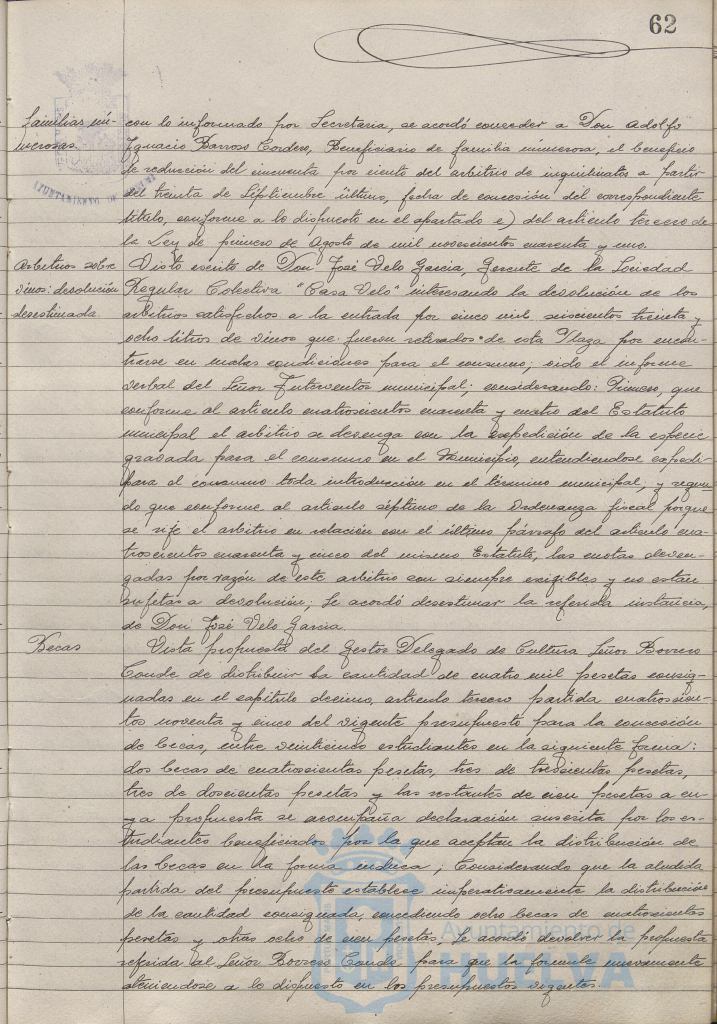 62
Familias nu-
merosas.
con lo informado por Secretaria, se acordó conceder a Don Adolfo
Ignacio Barroso Cordero, Beneficiario de familia numerosa, el beneficio
de reducción del cincuenta por ciento del arbitrio de inquilinatos a partir
del treinta de Septiembre último, fecha de concesión del correspondiente
título, conforme a lo dispuesto en el apartado e) del artículo tercero de
la Ley de primero de Agosto de mil novecientos cuarenta y uno.
Arbitrios sobre
vinos: devolución
desestimada
Visto escrito de Don José Velo Garcia, Gerente de la Sociedad
Regular Colectiva "Casa Velo" interesando la devolución de los
arbitrios satisfechos a la entrada por cinco mil seiscientos treinta y
ocho litros de vinos que fueron retirados de esta Plaza por encon-
trarse en malas condiciones para el consumo; oido el informe
verbal del Señor Interventor municipal; considerando: Primero, que
conforme al artículo cuatrocientos cuarenta y cuatro del Estatuto
municipal el arbitrio se devenga con la expedición de la especie
gravada para el consumo en el Municipio, entendiendose expedi-
para el consumo toda introducción en el término municipal; y segun-
do que conforme al artículo séptimo de la Ordenanza fiscal porque
se rije el arbitrio en relación con el último párrafo del artículo cua-
trocientos cuarenta y cinco del mismo Estatuto, las cuotas deven-
gadas por razón de este arbitrio son siempre exigibles y no estan
sujetas a devolución; Se acordó desestimar la referida instancia,
de Don José Velo Garcia.
Becas
Vista propuesta del Gestor Delegado de Cultura Señor Borrero
Conde de distribuir la cantidad de cuatro mil pesetas consig-
nadas en el capítulo decimo, artículo tercero partida cuatrocien-
tos noventa y cinco del vigente presupuesto para la concesión
de becas, entre veinticinco estudiantes en la siguiente forma:
dos becas de cuatrocientas pesetas, tres de trescientas pesetas,
tres de doscientas pesetas y las restantes de cien pesetas a cu-
ya propuesta se acompaña declaración suscrita por los es-
tudiantes beneficiados por la que aceptan la distribución de
las becas en la forma indica; Considerando que la aludida
partida del presupuesto establece imperativamente la distribución
de la cantidad consignada, concediendo ocho becas de cuatrocientas
pesetas y otras ocho de cien pesetas. Se acordó devolver la propuesta
referida al Señor Borrero Conde para que la formule nuevamente
ateniendose a lo dispuesto en los presupuestos vigentes.
Ayuntamiento de
HUELVA